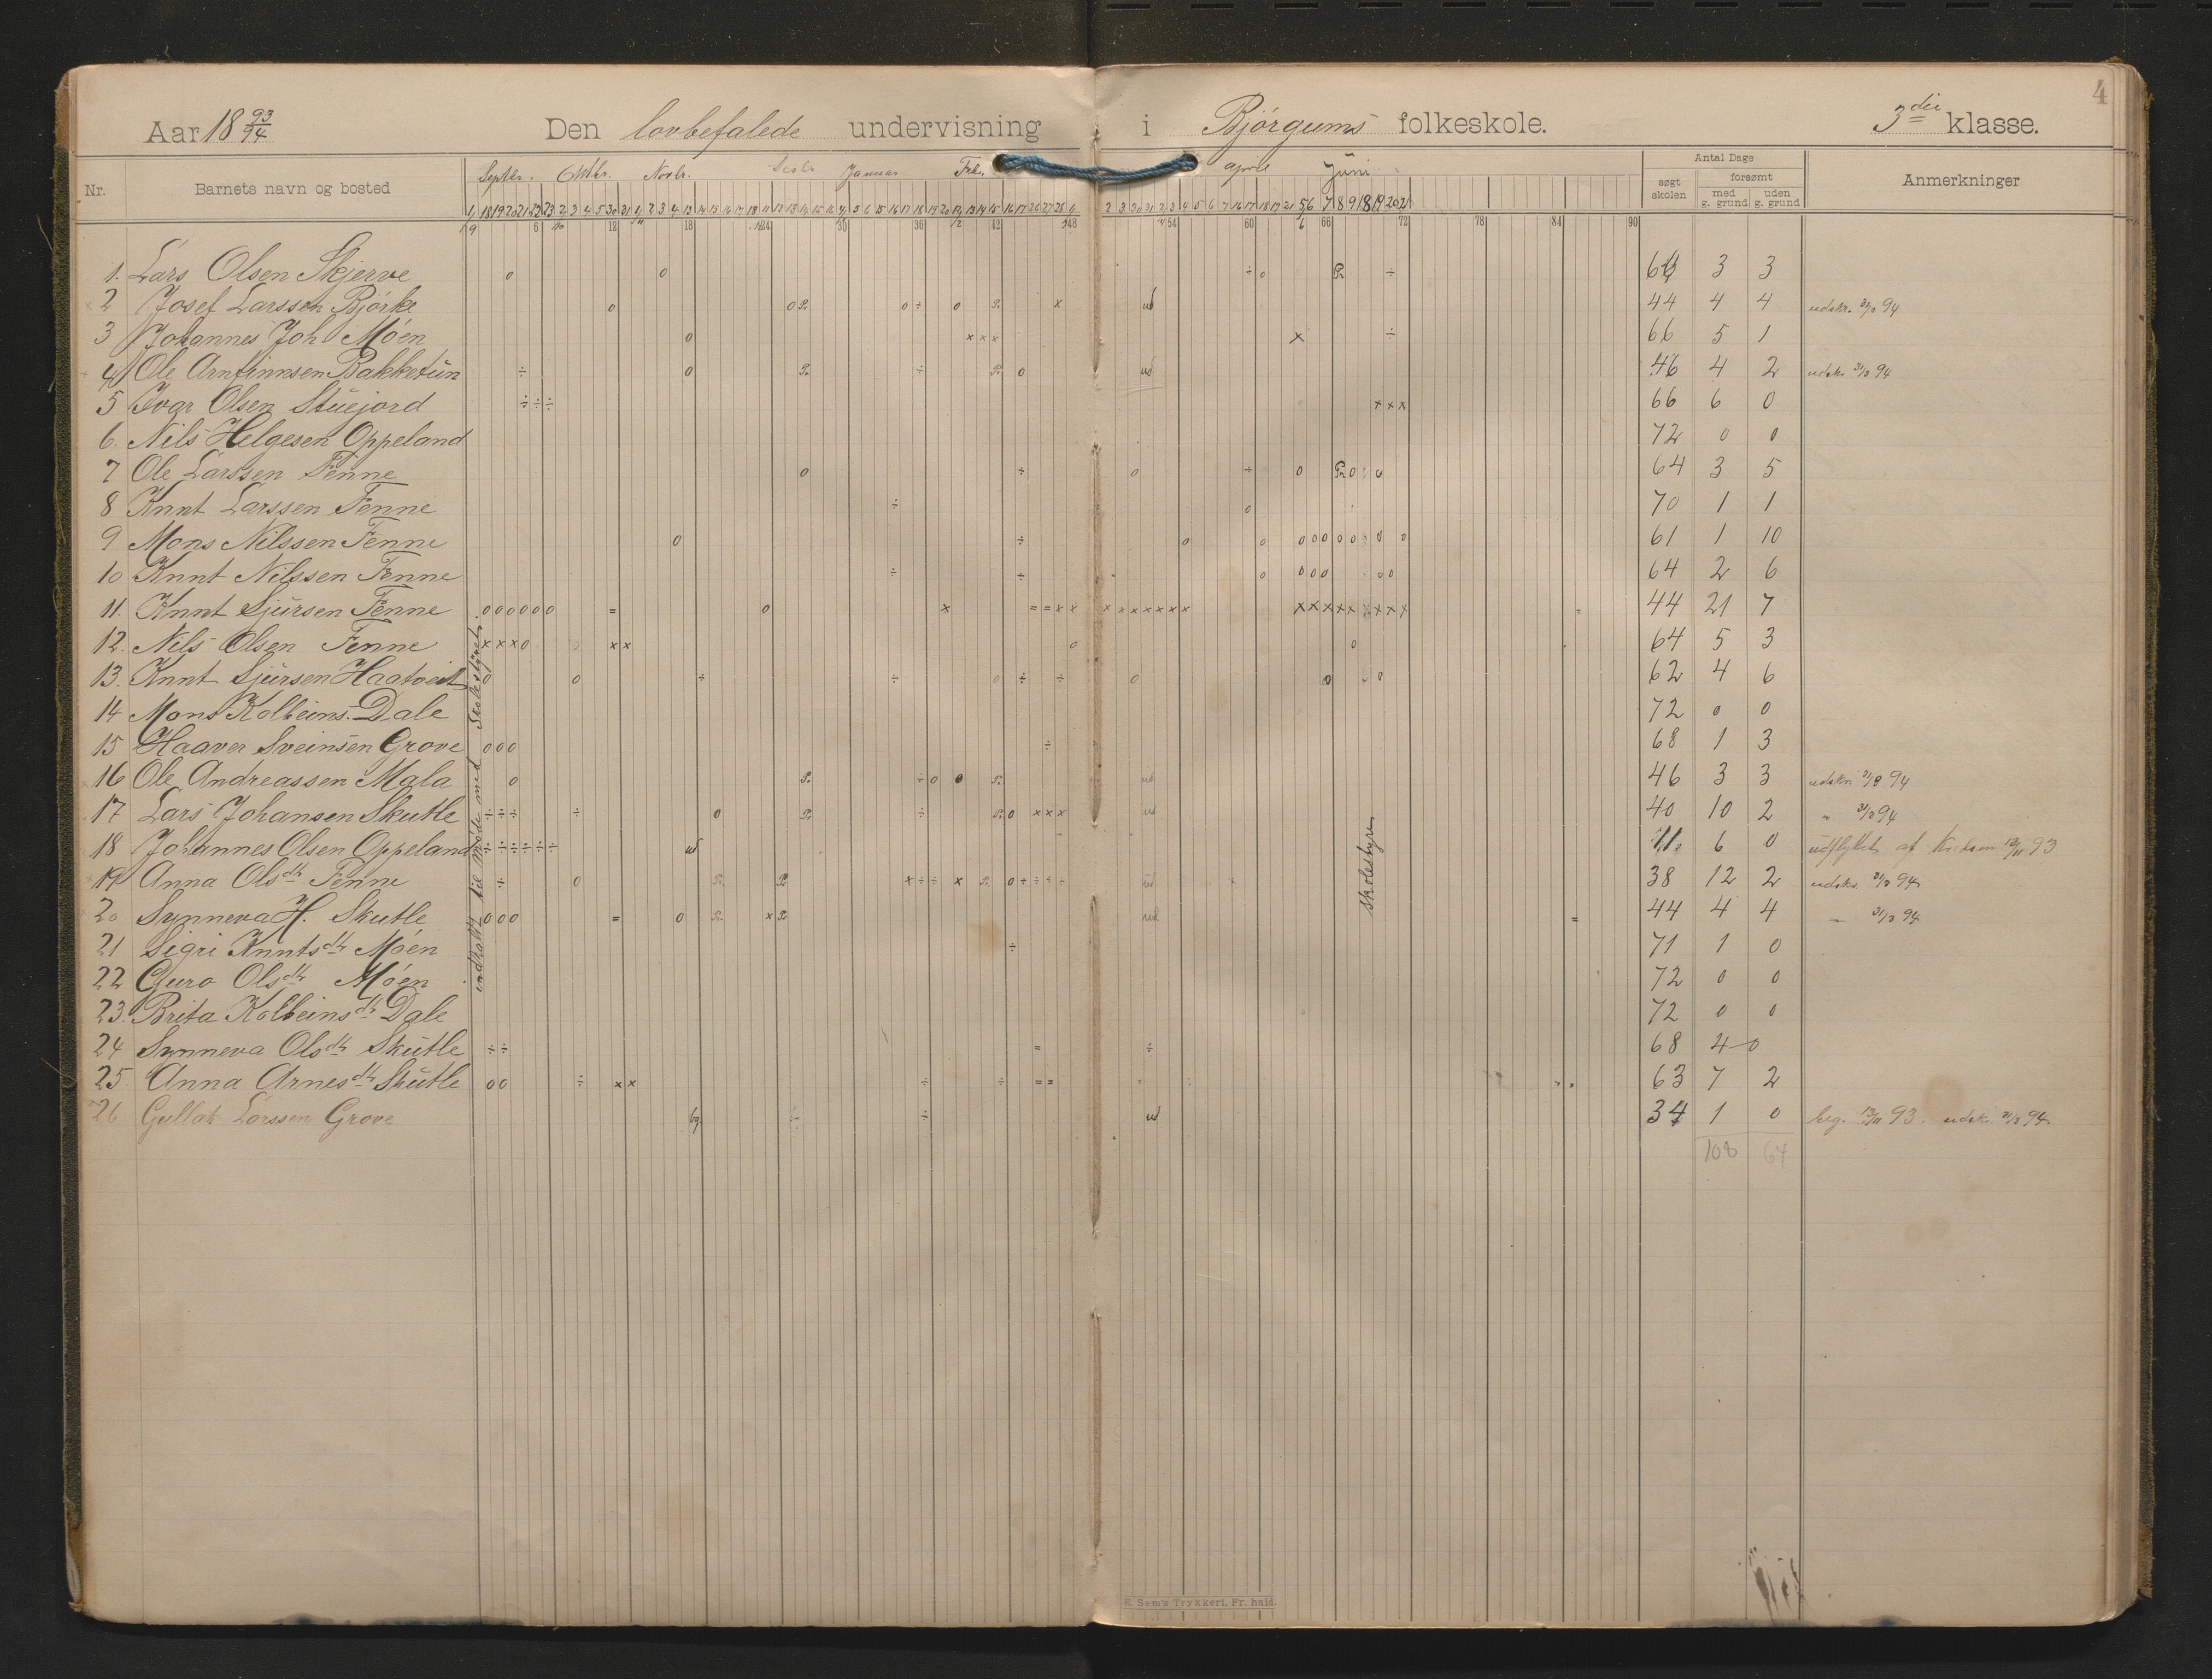 4
Aar 18 93/94 Den lovbefalede undervisning i Bjørgums folkeskole. 3die klasse.
Nr. Barnets navn og bosted Septbr. Oktbr. Novbr. Desbr Januar Feb. april Juni Antal Dage Anmerkninger
søgt skolen forsømt
med g. grund uden g. grund
6 12 18 24 30 36 42 48 54 60 66 72 78 84 90
1. Lars Olsen Skjerve 3 3
2 Josef Larssen Björke ud 44 4 4 udskr. 31/3 94
3 Johannes Joh Möen 66 5 1
4 Ole Arnfinnsen Bakketun ud 46 4 2 udskr 31/3 94
5 Ivar Olsen Stuejord 66 6 0
6. Nils Helgesen Oppeland 72 0 0
7 Ole Larssen Fenne 64 3 5
8 Knut Larssen Fenne 70 1 1
9 Mons Nilssen Fenne 61 1 10
10 Knut Nilssen Fenne 64 2 6
11. Knut Sjursen Fenne 44 21 7
12. Nils Olsen Fenne 64 5 3
13. Knut Sjursen Haatveit 62 4 6
14 Mons Kolbeins. Dale 72 0 0
15 Haaver Sveinsen Grove 68 1 3
16 Ole Andreassen Mala ud 46 3 3 udskr. 31/3 94
17 Lars Johansen Skutle ud 40 10 2 " 31/3 94
18 Johannes Olsen Oppeland ud 11. 6 0 udflyttet af Kredsen 13/11 93
19 Anna Olsdtr Fenne ud 38 12 2 udskr. 31/3 94
20 Synneva H. Skutle ud 44 4 4 " 31/3 94
21 Sigri Knutsdtr Möen 71 1 0
22 Guro Olsdtr Möen 72 0 0
23. Brita Kolbeinsdtr Dale 72 0 0
24 Synneva Olsdtr Skutle 68 4 0
25. Anna Arnesdtr Skutle 63 7 2
26 Gullak Larssen Grove bg. ud 34 1 0 beg. 13/11 93. udskr. 31/3 94.
108 64
indkaldt til møde med Skolestyret.
Skolestyre
E. Sem's Trykkeri, Fr. hald.